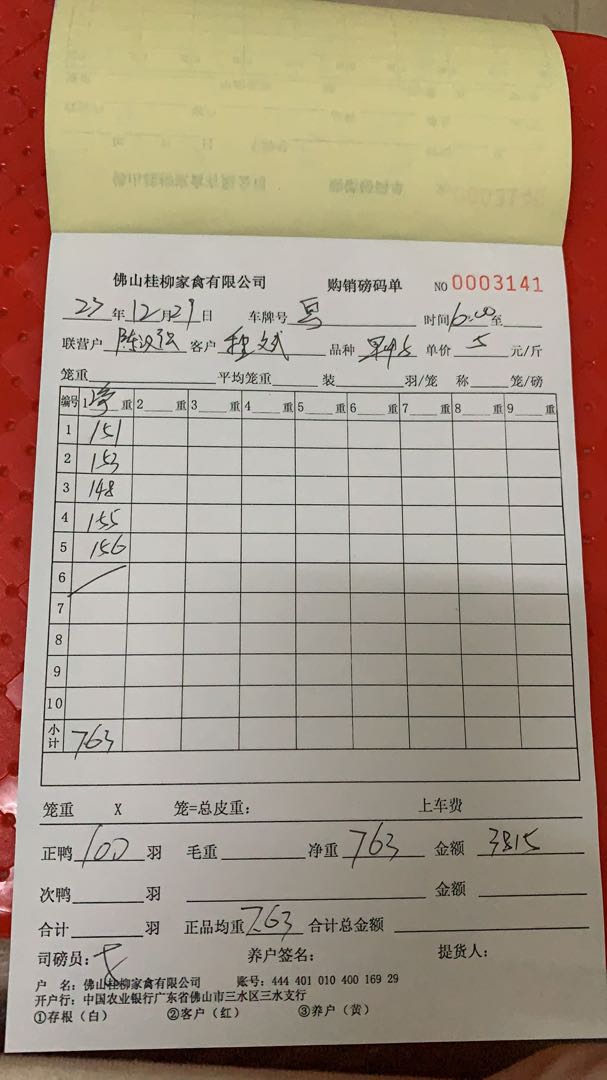 佛山桂柳家禽有限公司 购销磅码单 NO 0003141
23年12月29日 车牌号 时间6:00至
联营户 陈汉强 客户 文斌 品种 单价 5 元/斤
笼重 平均笼重 装 羽/笼 称 笼/磅
编号 1净重 2重 3重 4重 5重 6重 7重 8重 9重
1 151
2 153
3 148
4 155
5 156
6
7
8
9
10
小计 763
笼重 X 笼=总皮重: 上车费
正鸭100羽 毛重 净重763 金额3815
次鸭 羽 金额
合计 羽 正品均重7.63 合计总金额
司磅员: 养户签名: 提货人:
户 名: 佛山桂柳家禽有限公司 账号: 444 401 010 400 169 29
开户行: 中国农业银行广东省佛山市三水区三水支行
①存根(白) ②客户(红) ③养户(黄)